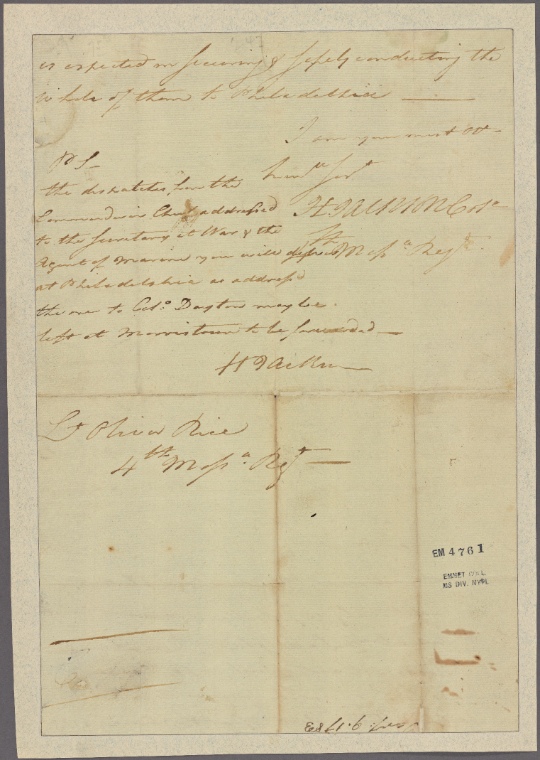 as expected in securing & safely conducting the
whole of them to Philadelphia —
I am your most Obt
humle Servt
H JACKSON Colo
4th Massa Regt.
PS—
the dispatches from the
Commander in Chief addressed
to the Secretary at War & the
Agent of Marine you will deliver
at Philadelphia as address'd
the one to Colo Dayton may be
left at Morristown to be forwarded—
H Jackson—
Lt Oliver Rice
4th Massa Regt—
EM 4761
EMMET COLL.
MS DIV. NYPL